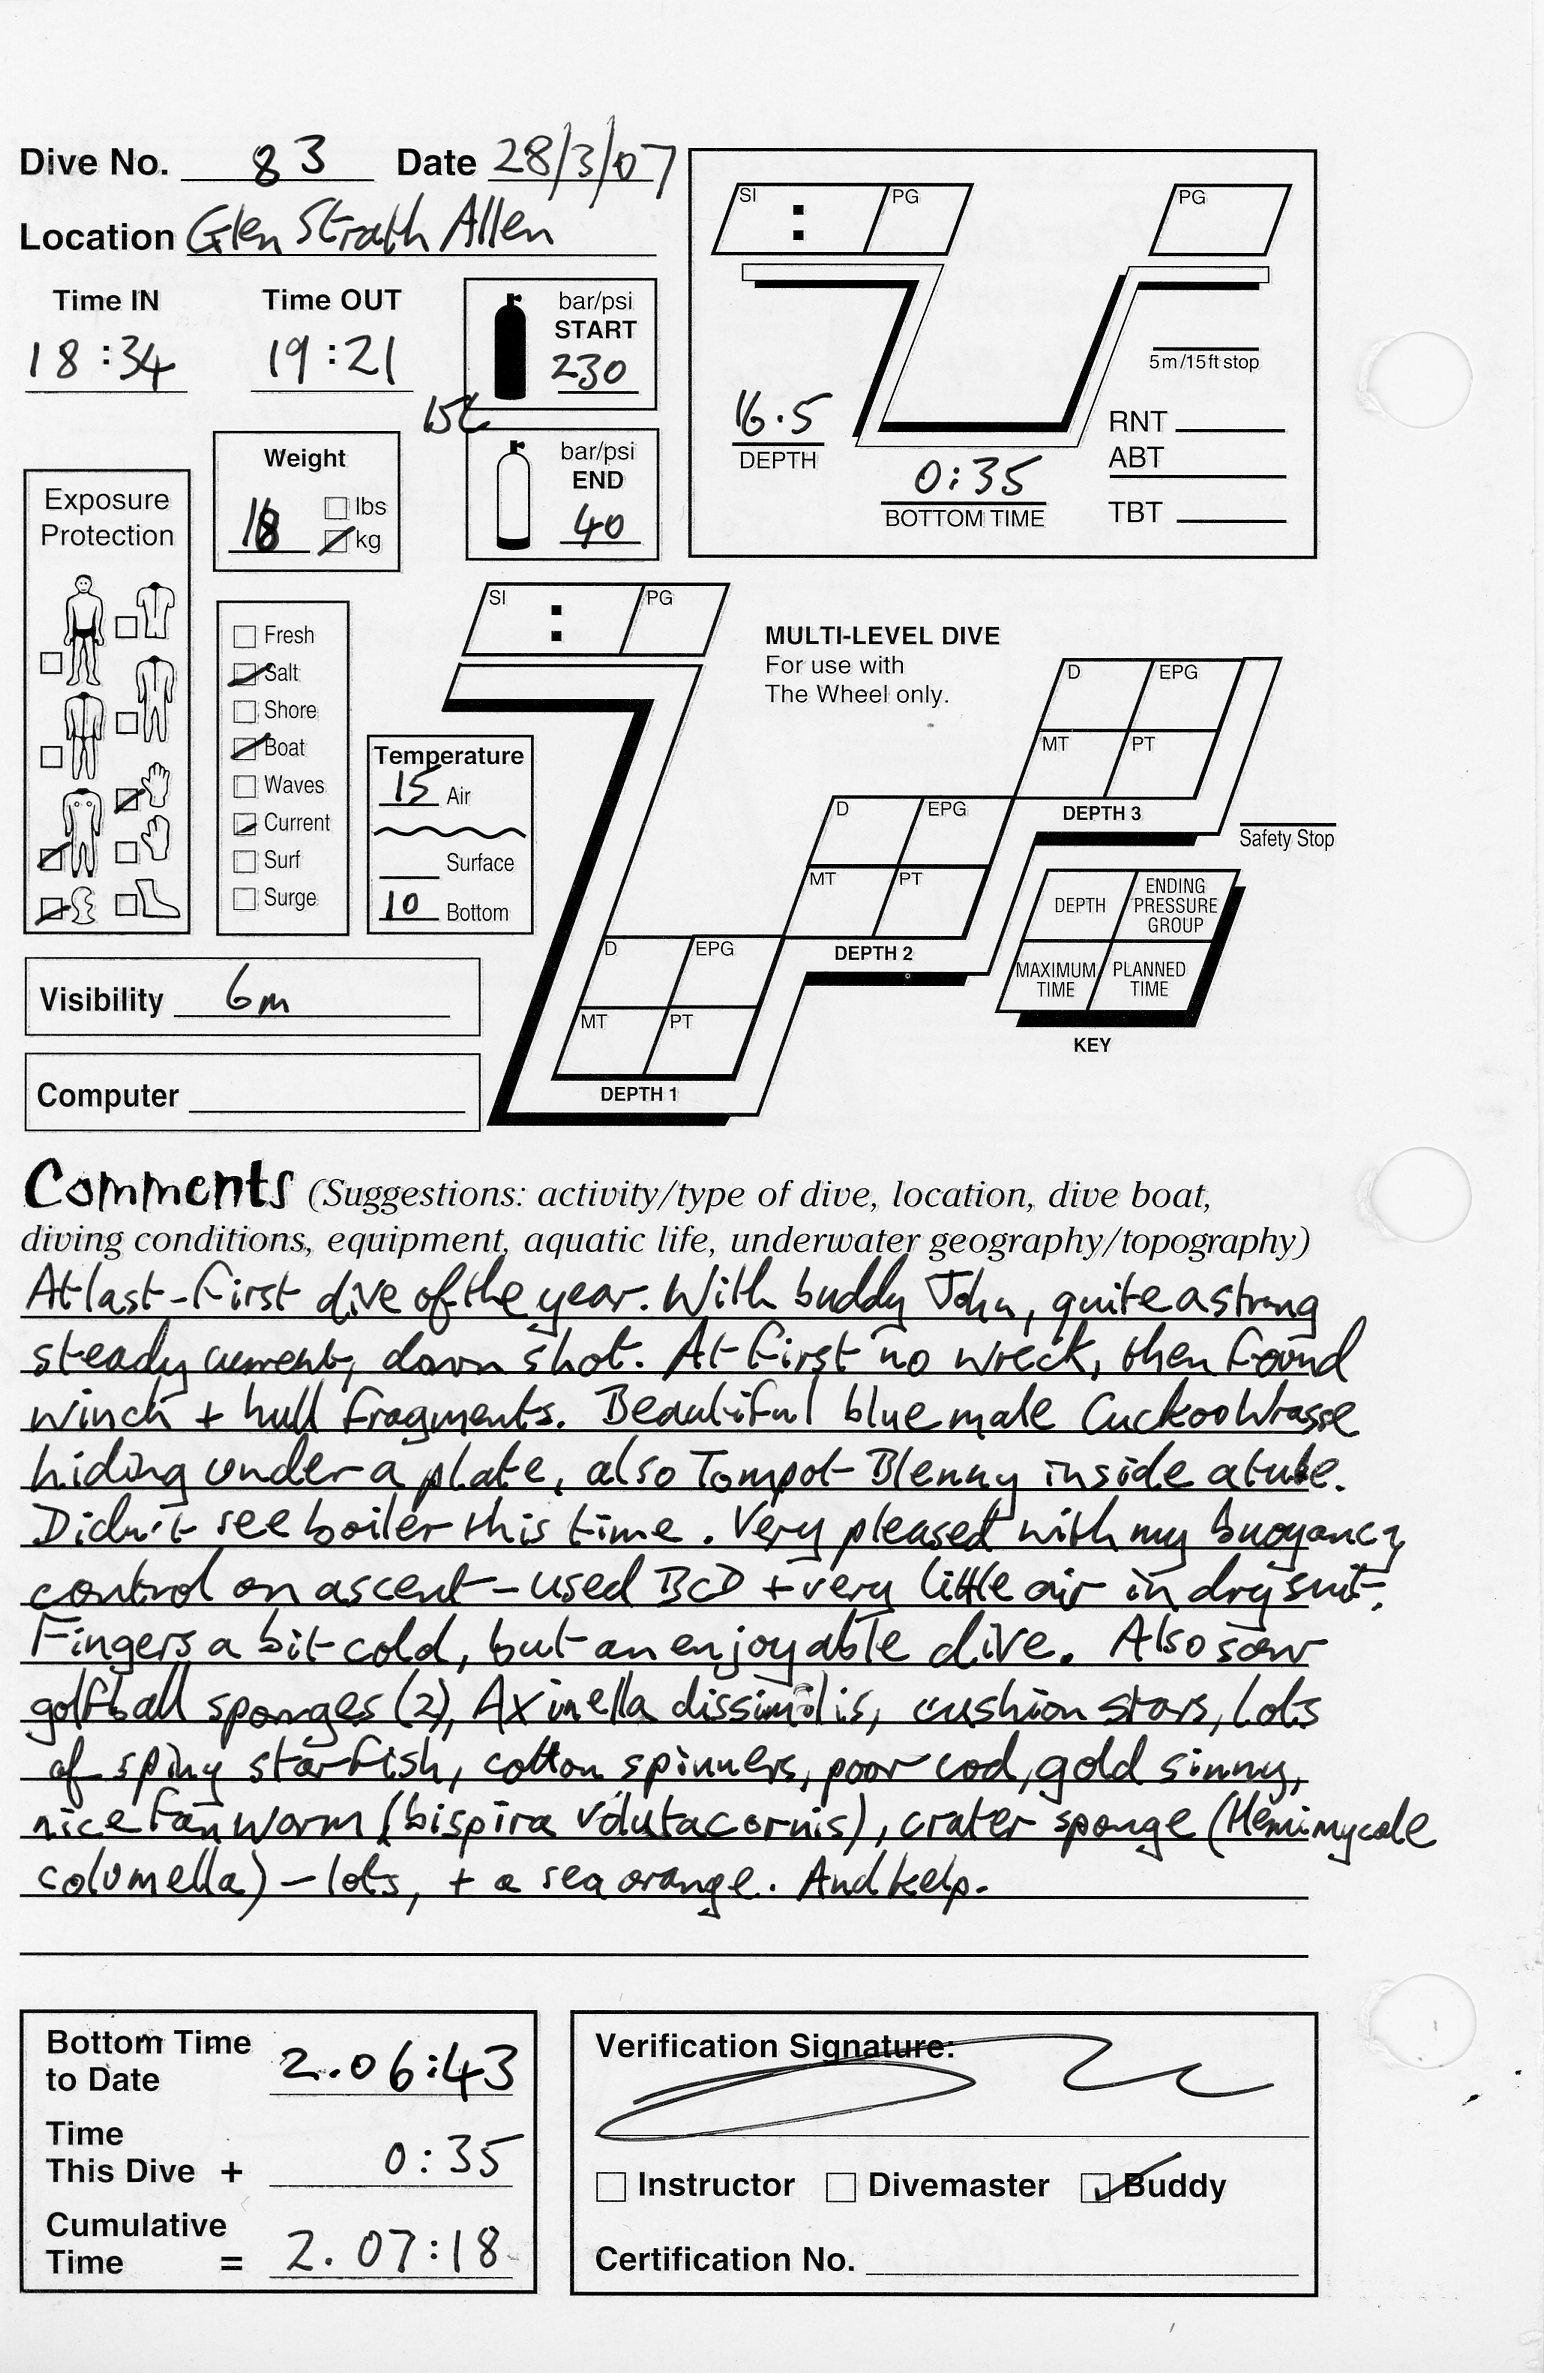 Dive No. 83 Date 28/3/07
Location Glen Strath Allen
Time IN Time OUT
18:34 19:21
bar/psi
START
230
15L
bar/psi
END
40
Weight
lbs
18 kg
Exposure
Protection
Fresh
Salt
Shore
Boat
Waves
Current
Surf
Surge
Temperature
15 Air
Surface
10 Bottom
Visibility 6m
Computer
SI : PG
PG
5m/15ft stop
16.5
DEPTH
0:35
BOTTOM TIME
RNT
ABT
TBT
SI : PG
MULTI-LEVEL DIVE
For use with
The Wheel only.
D EPG
MT PT
DEPTH 3
D EPG
MT PT
DEPTH 2
D EPG
MT PT
DEPTH 1
Safety Stop
DEPTH ENDING PRESSURE GROUP
MAXIMUM TIME PLANNED TIME
KEY
Comments (Suggestions: activity/type of dive, location, dive boat,
diving conditions, equipment, aquatic life, underwater geography/topography)
At last - first dive of the year. With buddy John, quite a strong
steady current, down shot. At first no wreck, then found
winch + hull fragments. Beautiful blue male Cuckoo Wrasse
hiding under a plate, also Tompot Blenny inside a tube.
Didn't see boiler this time. Very pleased with my buoyancy
control on ascent - used BCD + very little air in drysuit.
Fingers a bit cold, but an enjoyable dive. Also saw
golfball sponges (2), Axinella dissimilis, cushion stars, lots
of spiny starfish, cotton spinners, poor cod, gold sinny,
nice fan worm (bispira volutacornis), crater sponge (Hemimycale
columella) - lots, + a sea orange. And kelp.
Bottom Time
to Date 2.06:43
Time
This Dive + 0:35
Cumulative
Time = 2.07:18
Verification Signature:
Instructor Divemaster Buddy
Certification No.